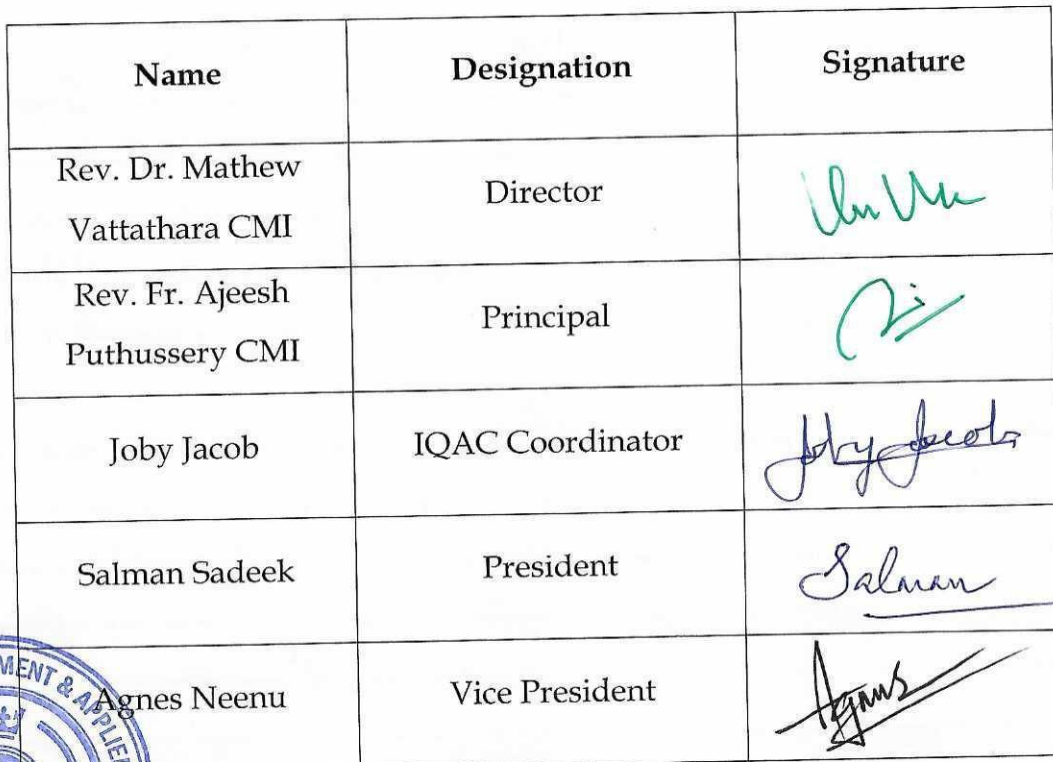 Name Designation Signature
Rev. Dr. Mathew
Vattathara CMI
Director
Rev. Fr. Ajeesh
Puthussery CMI
Principal
Joby Jacob IQAC Coordinator Joby Jacob
Salman Sadeek President Salman
Agnes Neenu Vice President Agnus
MENT & APPLIED